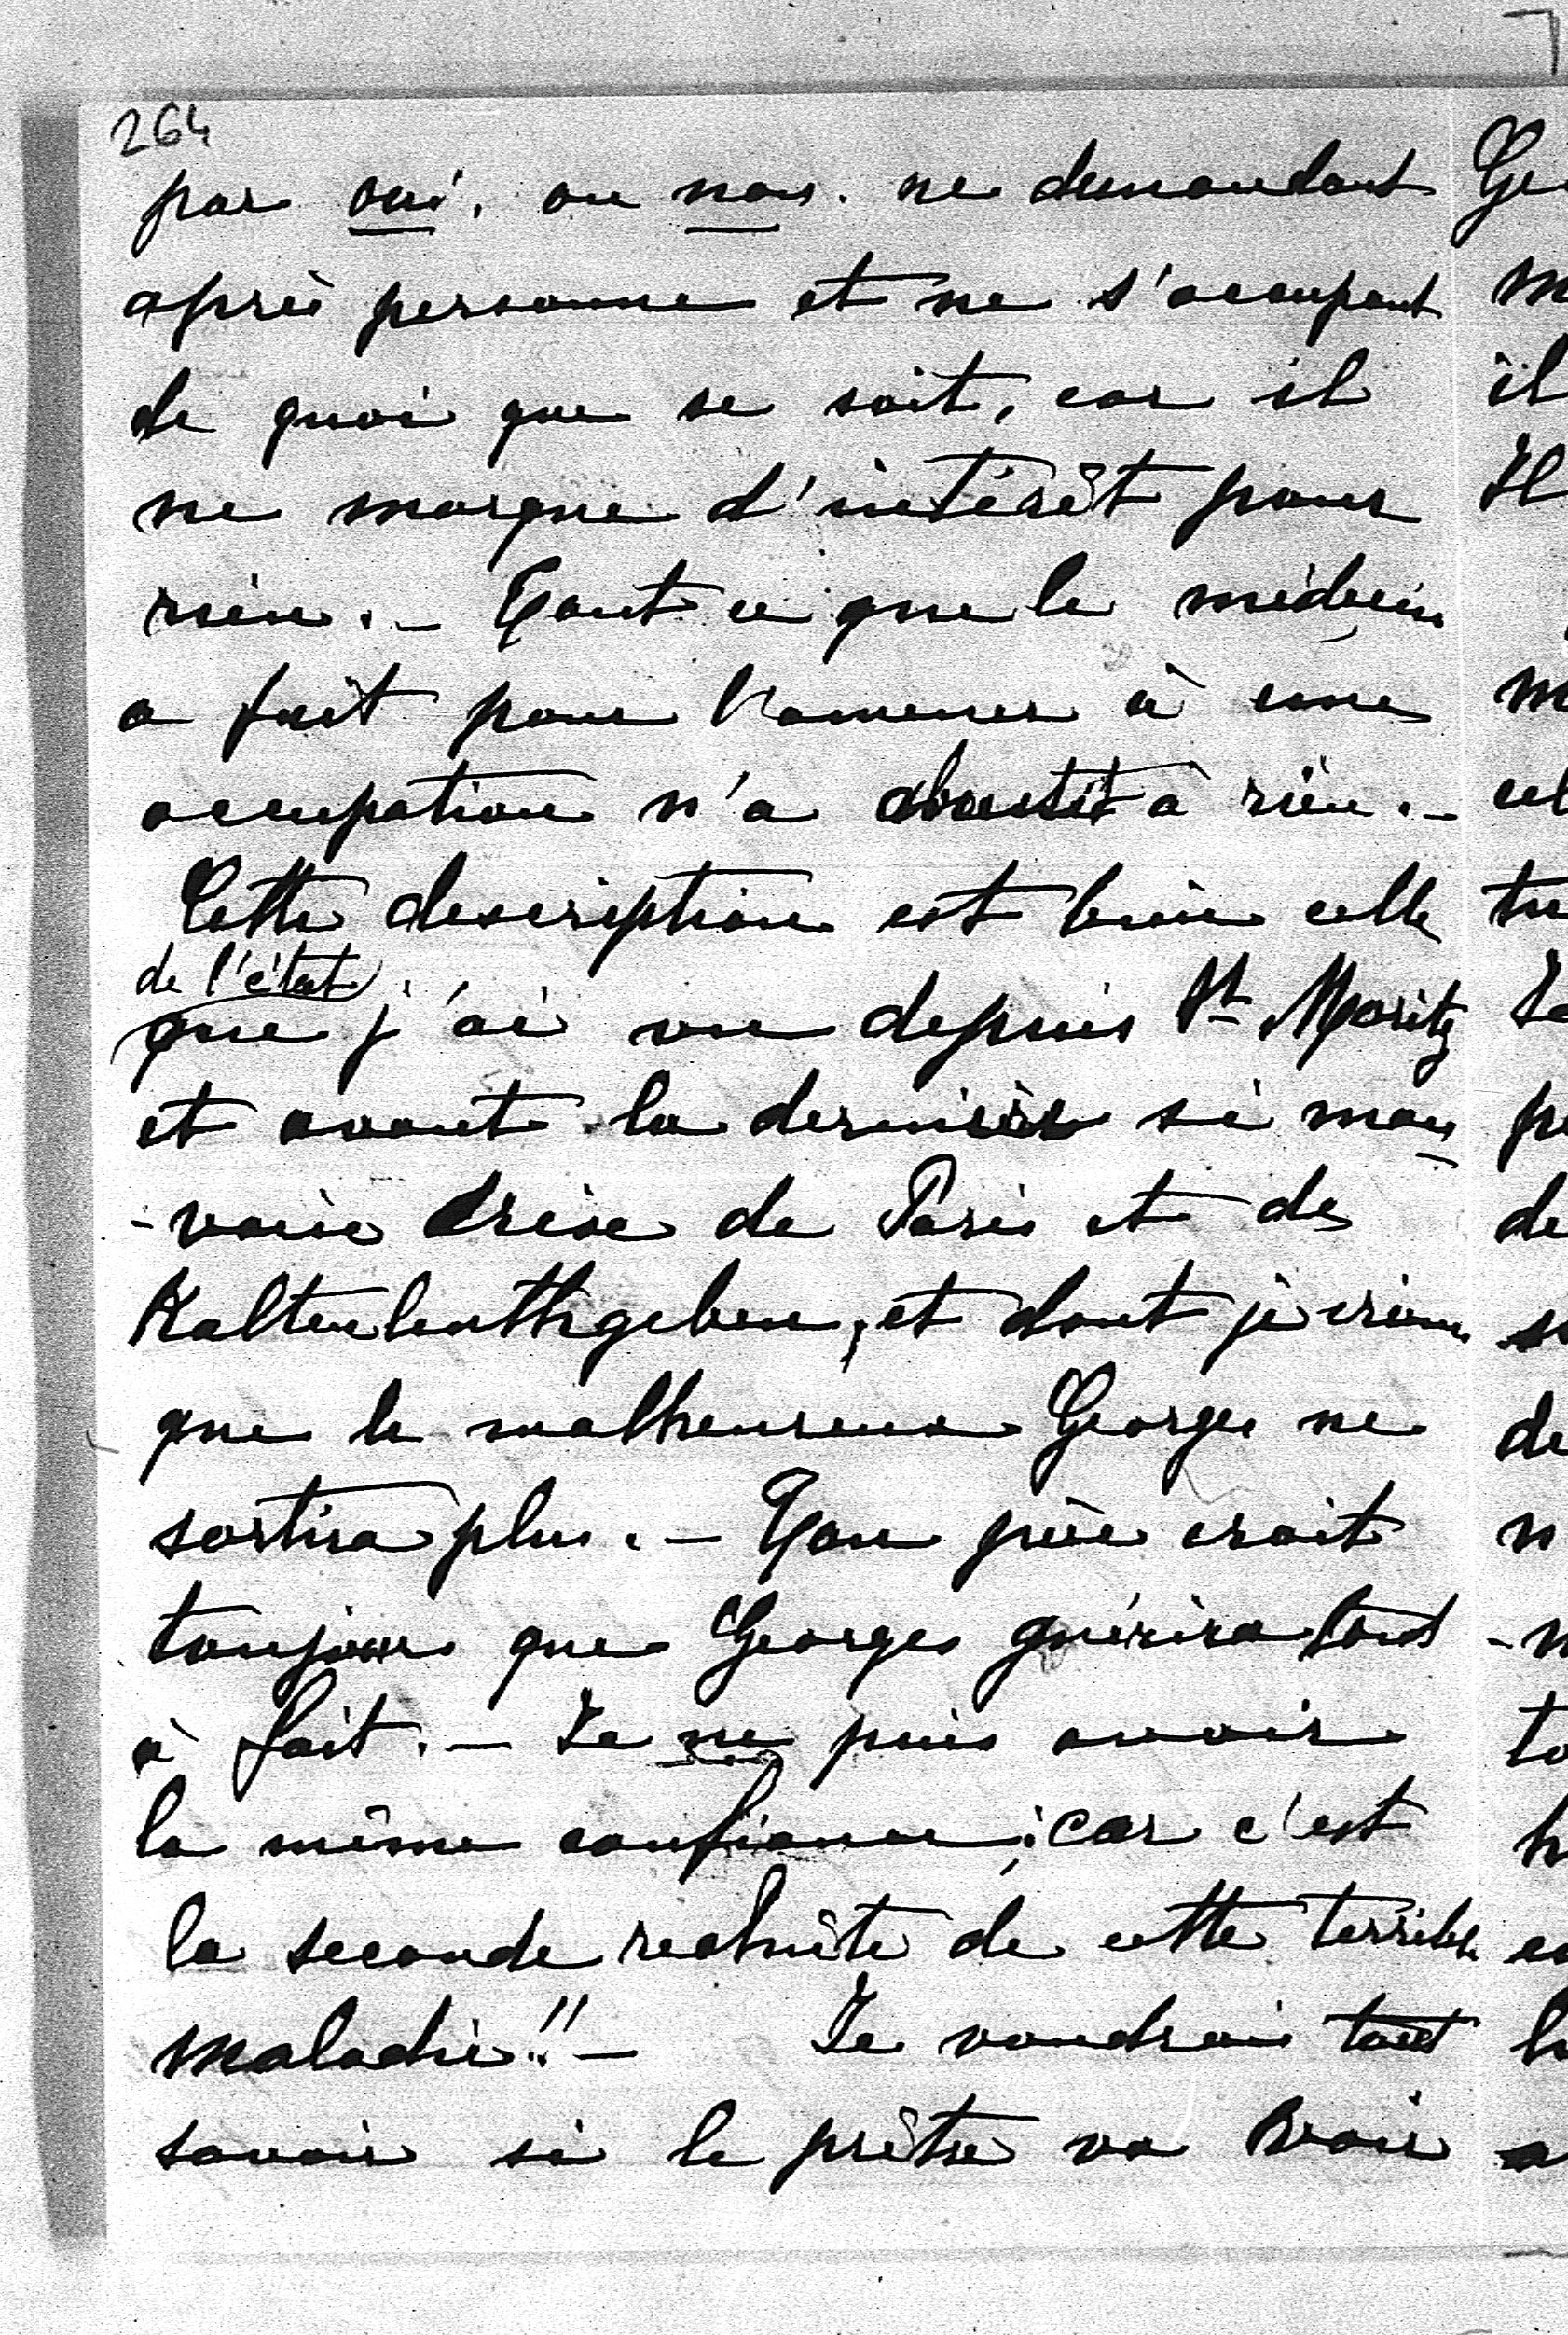 264
par oui, ou non. ne demandant
après personne et ne s'occupant
de quoi que se soit, car il
ne marque d'intérêt pour
rien. - Tout ce que le médecin
a fait pour l'amener à une
occupation n'a aboutit à rien. -
Cette description est bien celle
de l'état
que j'ai vu depuis St. Moritz
et avant la dernière si mau
-vaise crise de Paris et de
Kaltenleuthgeben, et dont je crains
que le malheureux Georges ne
sortira plus. - Ton père croit
toujours que Georges guérira tout
à fait. - Je ne puis avoir
la même confiance; car c'est
la seconde rechûte de cette terrible
maladie!! - Je voudrais tant
savoir si le prêtre va le voir